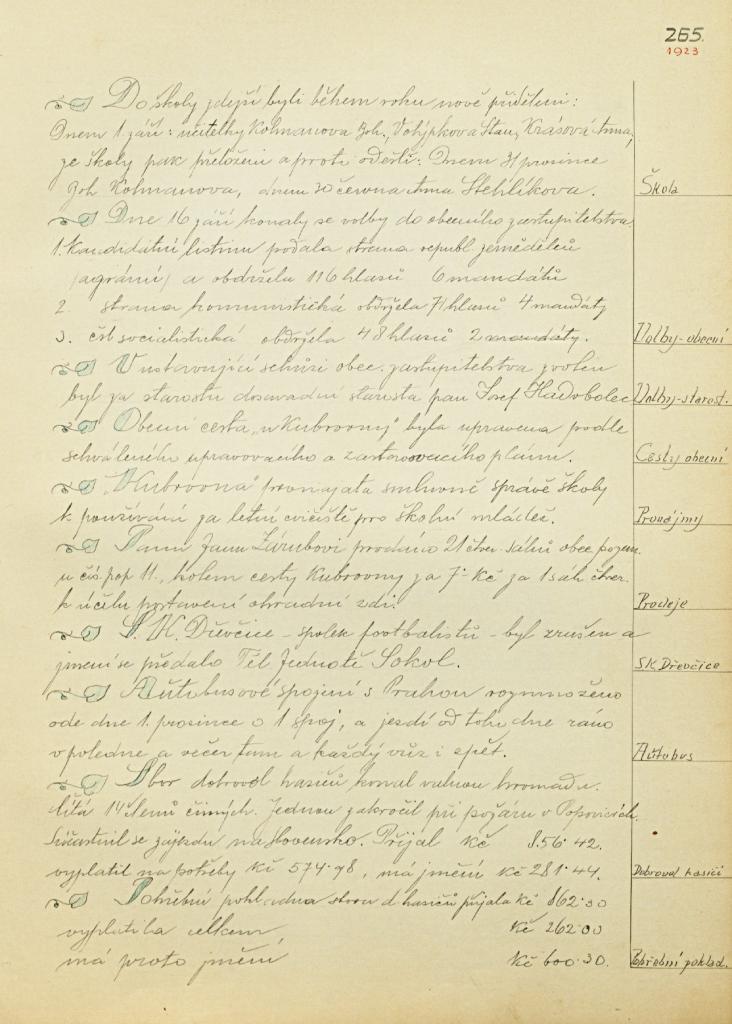 265.
1923
Do školy zdejší byli během roku nově přiděleni:
Dnem 1 září: učitelky Kolmanova Boh., Volýpková Stan, Krásová Anna,
ze školy pak přeloženi a proto odešli: Dnem 31 prosince
Boh Kolmanova, dnem 30 června Anna Stehlíkova.
Škola
Dne 16 září konaly se volby do obecního zastupitelstva
1. Kandidátní listinu podala strana republ. zemědělců
(agrární) a obdržela 116 hlasů 6 mandátů
2. strana komunistická obdržela 71 hlasů 4 mandáty
3. čsl socialistická obdržela 48 hlasů 2 mandáty.
Volby-obecní
V ustavující schůzi obec. zastupitelstva zvolen
byl za starostu dosavadní starosta pan Josef Hadobolec
Volby-starost.
Obecní cesta „u Kubrovny" byla upravena podle
schváleného upravovacího a zastavovacího plánu.
Cesty obecní
„Kubrovna" pronajata smluvně správě školy
k používání za letní cvičiště pro školní mládež.
Pronájmy
Panu Janu Zárubovi prodáno 21 čtver. sáhů obec. pozem.
u čís. pop 11., kolem cesty Kubrovny za 7·- Kč za 1 sáh čtver.
k účelu postavení ohradní zdi.
Prodeje
S. K. Dřevčice - spolek footbalistů - byl zrušen a
jmění se předalo Těl. Jednotě Sokol.
SK Dřevčice
Autobusové spojení s Prahou rozmnoženo
ode dne 1. prosince o 1 spoj, a jezdí od toho dne ráno
v poledne a večer tam a každý vůz i zpět.
Autobus
Sbor dobrovol hasičů konal valnou hromadu.
čítá 14 členů činných. Jednou zakročil při požáru v Popovicích.
Súčastnil se zájezdu na Slovensko. Přijal Kč 856·42.
vyplatil na potřeby Kč 574·98, má jmění Kč 281·44.
Dobrovol hasiči
Pohřební pokladna sboru d hasičů přijala Kč 862·30
vyplatila celkem Kč 262·00
má proto jmění Kč 600·30.
Pohřební poklad.